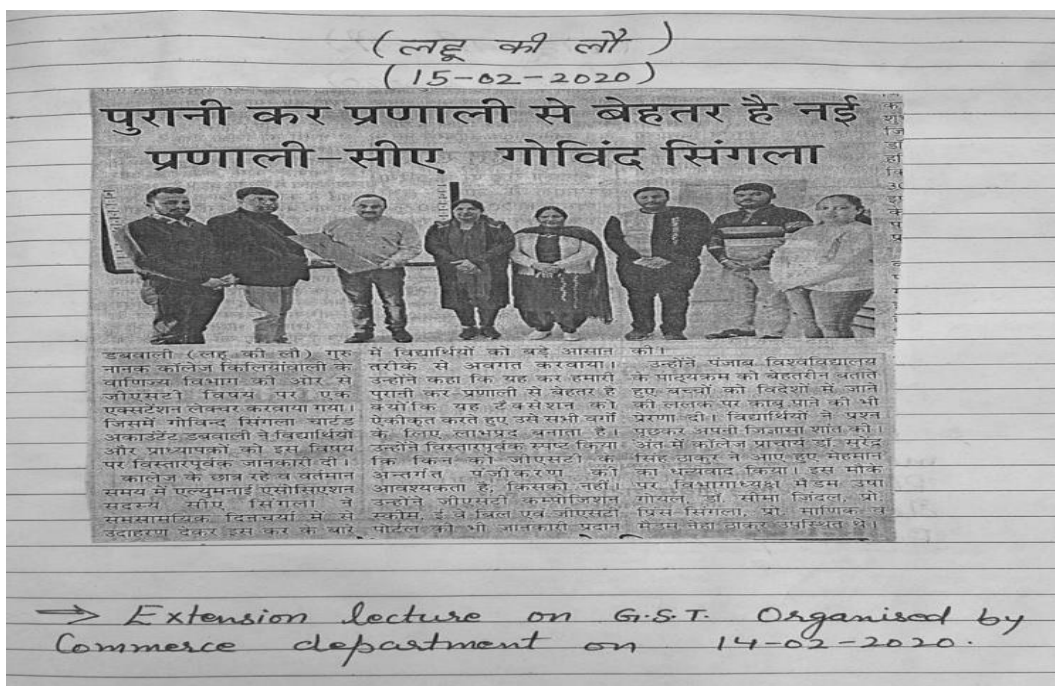 (लहू की लौ)
(15-02-2020)
पुरानी कर प्रणाली से बेहतर है नई
प्रणाली-सीए गोविंद सिंगला
डबवाली (लहू की लौ) गुरु
नानक कॉलेज किलियांवाली के
वाणिज्य विभाग की ओर से
जीएसटी विषय पर एक
एक्सटेंशन लेक्चर करवाया गया।
जिसमें गोविन्द सिंगला चार्टड
अकाउंटेंट डबवाली ने विद्यार्थियों
और प्राध्यापकों को इस विषय
पर विस्तारपूर्वक जानकारी दी।
कालेज के छात्र रहे व वर्तमान
समय में एल्युमनाई एसोसिएशन
सदस्य सीए सिंगला ने
समसामयिक दिनचर्या में से
उदाहरण देकर इस कर के बारे
में विद्यार्थियों को बड़े आसान
तरीके से अवगत करवाया।
उन्होंने कहा कि यह कर हमारी
पुरानी कर प्रणाली से बेहतर है
क्योंकि यह टैक्सेशन को
ऐकीकृत करते हुए उसे सभी वर्गों
के लिए लाभप्रद बनाता है।
उन्होंने विस्तारपूर्वक स्पष्ट किया
कि किन को जीएसटी के
अन्तर्गत पंजीकरण की
आवश्यकता है, किसको नहीं।
उन्होंने जीएसटी कम्पोजिशन
स्कीम, ई वे बिल एवं जीएसटी
पोर्टल की भी जानकारी प्रदान
की।
उन्होंने पंजाब विश्वविद्यालय
के पाठ्यक्रम को बेहतरीन बताते
हुए बच्चों को विदेशों में जाने
की ललक पर काबू पाने की भी
प्रेरणा दी। विद्यार्थियों ने प्रश्न
पूछकर अपनी जिज्ञासा शांत की।
अंत में कॉलेज प्राचार्य डॉ. सुरेंद्र
सिंह ठाकुर ने आए हुए मेहमान
का धन्यवाद किया। इस मौके
पर विभागाध्यक्ष मैडम उषा
गोयल, डॉ सीमा जिंदल, प्रो.
प्रिंस सिंगला, प्रो. माणिक व
मैडम नेहा ठाकुर उपस्थित थे।
⇒ Extension lecture on G.S.T. Organised by
Commerce department on 14-02-2020.